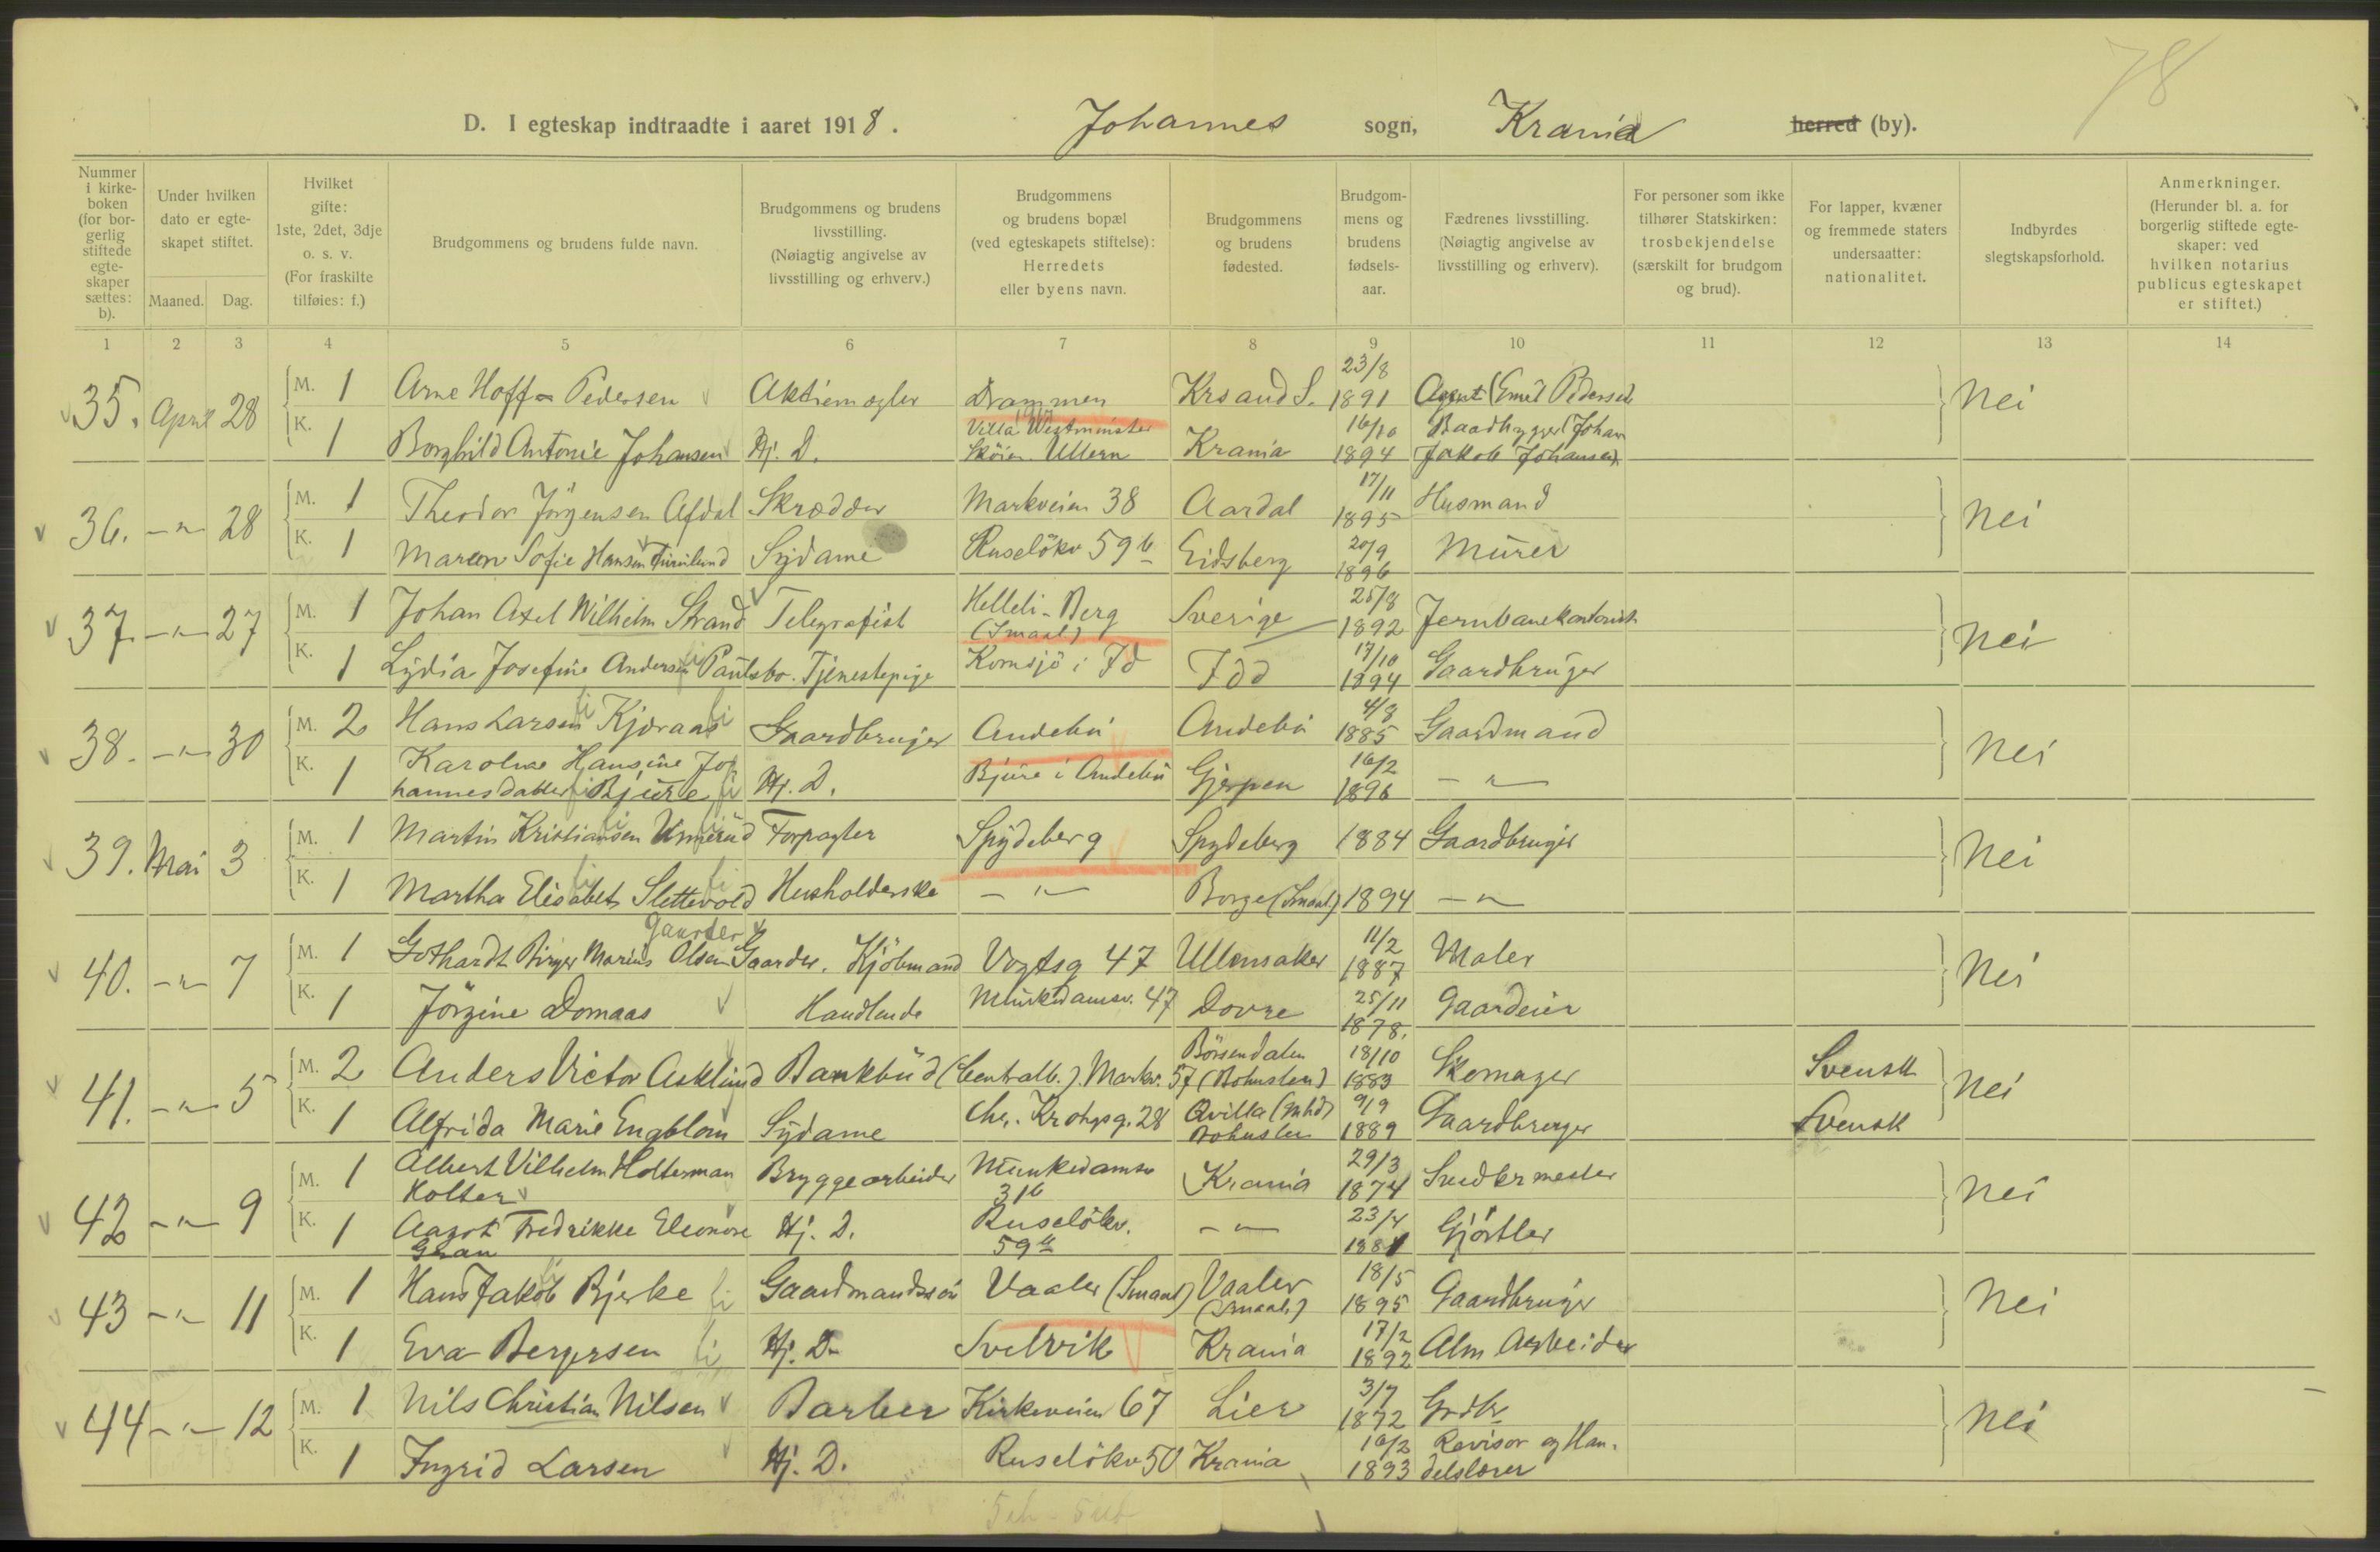 78
D. I egteskap indtraadte i aaret 1918. Johannes sogn, Krania herred (by).
Nummer i kirkeboken (for borgerlig stiftede egteskaper sættes: b).
Under hvilken dato er egteskapet stiftet.
Maaned. Dag.
Hvilket gifte: 1ste, 2det, 3dje o. s. v. (For fraskilte tilføies: f.)
Brudgommens og brudens fulde navn.
Brudgommens og brudens livsstilling. (Nøiagtig angivelse av livsstilling og erhverv.)
Brudgommens og brudens bopæl (ved egteskapets stiftelse): Herredets eller byens navn.
Brudgommens og brudens fødested.
Brudgommens og brudens fødselsaar.
Fædrenes livsstilling. (Nøiagtig angivelse av livsstilling og erhverv).
For personer som ikke tilhører Statskirken: trosbekjendelse (særskilt for brudgom og brud).
For lapper, kvæner og fremmede staters undersaatter: nationalitet.
Indbyrdes slegtskapsforhold.
Anmerkninger. (Herunder bl. a. for borgerlig stiftede egteskaper: ved hvilken notarius publicus egteskapet er stiftet.)
1 2 3 4 5 6 7 8 9 10 11 12 13 14
35. April 28 M. 1 Arne Hoff Pedersen Aktiemægler Drammen Krsand S. 23/8 1891 Agent (Emil Pedersen Nei
K. 1 Borghild Antonie Johansen Hj. D. Villa Westminster Skøien Ullern Krania 16/10 1894 Baadbygger (Johan Jakob Johansen)
36. -"- 28 M. 1 Theodor Jörgensen Afdal Skrædder Markveien 38 Aardal 17/11 1895 Husmand Nei
K. 1 Maren Sofie Hansen Sydame Ruselökv 59 b Eidsberg 20/9 1896 Murer
37. -"- 27 M. 1 Johan Axel Wilhelm Strand Telegrafist Helleli-Berg (Smaal) Sverige 25/8 1892 Jernbanekontorist Nei
K. 1 Lydia Josefine Andersen Paulsbo. Tjenestepige Kornsjö i Id Idd 17/10 1894 Gaardbruger
38. -"- 30 M. 2 Hans Larsen Kjæraas Gaardbruger Andebu Andebu 4/8 1885 Gaardmand Nei
K. 1 Karoline Hansine Johannesdatter Bjure Hj. D. Bjure i Andebu Gjerpen 16/2 1896 -"-
39. Mai 3 M. 1 Martin Kristiansen Forpagter Spydeberg Spydeberg 1884 Gaardbruger Nei
K. 1 Martha Elisabet Slettevold Husholderske -"- Borge (Smaal.) 1894 -"-
Gaarder
40. -"- 7 M. 1 Gothardt Birger Marius Olsen Gaarder. Kjöbmand Vogtsg 47 Ullensaker 11/2 1887 Maler Nei
K. 1 Jörgine Domaas Handlende Munkedamsv. 47 Dovre 25/11 1878. Gaardeier
41. -"- 5 M. 2 Anders Victor Asklund Bankbud (Centralb.). Markv. 57 Börsendalen (Bohuslen) 18/10 1883 Skomager Svensk Nei
K. 1 Alfrida Marie Engblom Sydame Chr. Krohgsg. 28 Qvilla Bohuslen 9/9 1889 Gaardbruger Svensk
42 -"- 9 M. 1 Albert Vilhelm Holterman Holter Bryggearbeider Munkedamsv 31b Krania 29/3 1874 Snedkermester Nei
K. 1 Aagot Fredrikke Eleonore Gran Hj. D. Ruselökv. 59 -"- 23/4 1881 Gjörtler
43 -"- 11 M. 1 Hans Jakob Bjerke Gaardmandssön Vaaler (Smaal) Vaaler (Smaal.) 18/5 1895 Gaardbruger Nei
K. 1 Eva Bergersen Hj. D. Svelvik Krania 17/2 1892 Alm Arbeider
44 -"- 12 M. 1 Nils Christian Nilsen Barber Kirkeveien 67 Lier 3/7 1872 Grdbr Nei
K. 1 Ingrid Larsen Hj. D. Ruselökv 50 Krania 16/2 1893 Revisor og Handelslærer